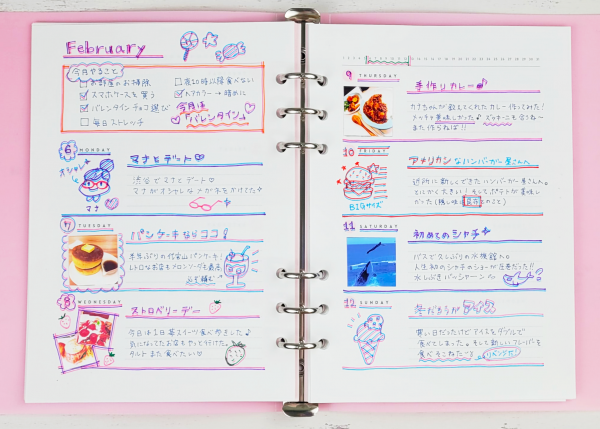 February
今月やること
□お部屋のお掃除
☑スマホケースを買う
☑バレンタインチョコ選び
□毎日ストレッチ
□夜20時以降食べない
☑ヘアカラー→暗めに
今月は
「バレンタイン」
6 MONDAY
マナとデート♡
オシャレ
渋谷でマナとデート♡
マナがオシャレなメガネをかけてた
マナ♡
7 TUESDAY
パンケーキならココ!
半年ぶりの代官山パンケーキ!
レトロなお店でメロンソーダも最高。
8 WEDNESDAY
ストロベリーデー
今日は1日苺スイーツ食べ歩きました♪
気になってたお店もやっと行けた。
タルトまた食べたい♡
9 THURSDAY
手作りカレー♪
カナちゃんが教えてくれたカレー作ってみた!
美味しかった♪ズッキーニも合うね〜
また作らねば!!
10 FRIDAY
アメリカンなハンバーガー屋さんへ
BIGサイズ
近所に新しくできたハンバーガー屋さん。
とにかく大きい!そしてポテトが美味し
かった(隠し味は とのこと)
11 SATURDAY
初めてのシャチ
バスで久しぶりの水族館へ。
人生初のシャチのショーが圧巻だった!!
水しぶきバシャーン〜
12 SUNDAY
冬だからがアイス
寒い日だったけどアイスをダブルで
食べてしまった。そして新しいフレーバーを
食べそこねた〜 リベンジだ!